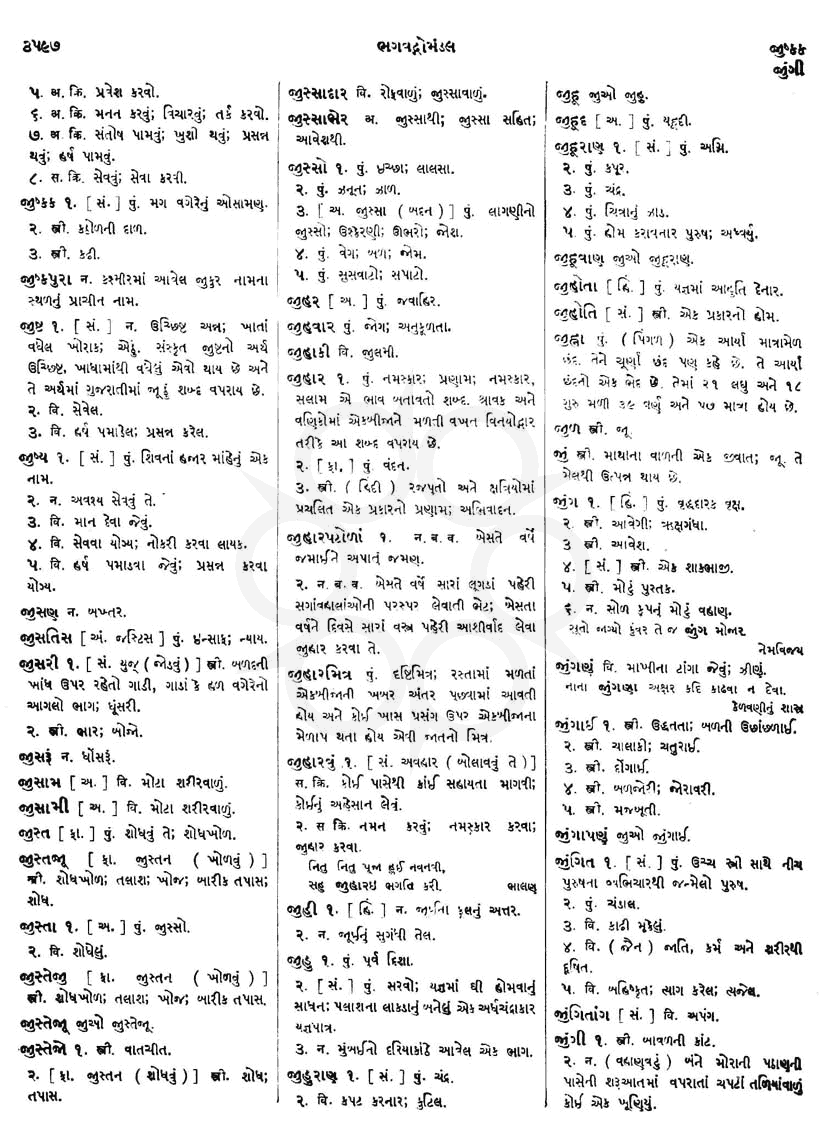 ૩૫૯૭
ભગવદ્ગોમંડલ
જીુષ્કક
જીુંગી
૫. અ. ક્રિ. પ્રવેશ કરવો.
૬. અ. ક્રિ. મનન કરવું; વિચારવું; તર્ક કરવો.
૭. અ. ક્રિ. સંતોષ પામવું; ખુશી થવું; પ્રસન્ન
થવું; હર્ષ પામવું.
૮. સ. ક્રિ. સેવવું; સેવા કરવી.
જુષ્કક ૧. [ સં. ] પું. મગ વગેરેનું ઓસામણ.
૨. સ્ત્રી. કઠોળની દાળ.
૩. સ્ત્રી. કઢી.
જુષ્કપુરા ન. કાશ્મીરમાં આવેલ જુકુર નામના
સ્થળનું પ્રાચીન નામ.
જુષ્ટ ૧. [ સં. ] ન. ઉચ્છિષ્ટ અન્ન; ખાતાં
વધેલ ખોરાક; એઠું. સંસ્કૃત જુષ્ટનો અર્થ
ઉચ્છિષ્ટ, ખાધામાંથી વધેલું એવો થાય છે અને
તે અર્થમાં ગુજરાતીમાં જૂઠું શબ્દ વપરાય છે.
૨. વિ. સેવેલ.
૩. વિ. હર્ષ પમાડેલ; પ્રસન્ન કરેલ.
જુષ્ય ૧. [ સં. ] પું. શિવનાં હજાર માંહેનું એક
નામ.
૨. ન. અવશ્ય સેવવું તે.
૩. વિ. માન દેવા જેવું.
૪. વિ. સેવવા યોગ્ય; નોકરી કરવા લાયક.
૫. વિ. હર્ષ પમાડવા જેવું; પ્રસન્ન કરવા
યોગ્ય.
જુસણ ન. બખ્તર.
જુસતિસ [ અં. જસ્ટિસ ] પું. ઇન્સાફ; ન્યાય.
જુસરી ૧. [ સં. યુજ્ ( જોડવું ) ] સ્ત્રી. બળદની
ખાંધ ઉપર રહેતો ગાડી, ગાડાં કે હળ વગેરેનો
આગલો ભાગ; ધૂંસરી.
૨. સ્ત્રી. ભાર; બોજો.
જુસરું ન. ધોંસરું.
જુસામ [ અ. ] વિ. મોટા શરીરવાળું.
જુસામી [ અ. ] વિ. મોટા શરીરવાળું.
જુસ્ત [ ફા. ] પું. શોધવું તે; શોધખોળ.
જુસ્તજૂ [ ફા. જુસ્તન ( ખોળવું ) ]
સ્ત્રી. શોધખોળ; તલાશ; ખોજ; બારીક તપાસ;
શોધ.
જુસ્તા ૧. [ અ. ] પું. જુસ્સો.
૨. વિ. શોધેલું.
જુસ્તેજુ [ ફા. જુસ્તન ( ખોળવું ) ]
સ્ત્રી. શોધખોળ; તલાશ; ખોજ; બારીક તપાસ.
જુસ્તેજૂ જુઓ જુસ્તેજુ.
જુસ્તેજો ૧. સ્ત્રી. વાતચીત.
૨. [ ફા. જુસ્તન ( શોધવું ) ] સ્ત્રી. શોધ;
તપાસ.
જુસ્સાદાર વિ. રોફવાળું; જુસ્સાવાળું.
જુસ્સાભેર અ. જુસ્સાથી; જુસ્સા સહિત;
આવેશથી.
જુસ્સો ૧. પું. ઇચ્છા; લાલસા.
૨. પું. ઝનૂન; ઝાળ.
૩. [ અ. જુસ્સા ( બદન ) ] પું. લાગણીનો
જુસ્સો; ઉશ્કેરણી; ઊભરો; જોશ.
૪. પું. વેગ; બળ; જોમ.
૫. પું. સુસવાટો; સપાટો.
જુહર [ અ. ] પું. જવાહિર.
જુહવાર પું. જોગ; અનુકૂળતા.
જુહાકી વિ. જુલમી.
જુહાર ૧. પું. નમસ્કાર; પ્રણામ; નમસ્કાર,
સલામ એ ભાવ બતાવતો શબ્દ. શ્રાવક અને
વણિકોમાં એકબીજાને મળતી વખત વિનયોદ્ગાર
તરીકે આ શબ્દ વપરાય છે.
૨. [ ફા. ] પું. વંદન.
૩. સ્ત્રી. ( હિંદી ) રજપૂતો અને ક્ષત્રિયોમાં
પ્રચલિત એક પ્રકારનો પ્રણામ; અભિવાદન.
જુહારપટોળાં ૧. ન. બ. વ. બેસતે વર્ષે
જમાઈને અપાતું જમણ.
૨. ન. બ. વ. બેસતે વર્ષે સારાં લૂગડાં પહેરી
સગાંવહાલાંઓની પરસ્પર લેવાતી ભેટ; બેસતા
વર્ષને દિવસે સારાં વસ્ત્ર પહેરી આશીર્વાદ લેવા
જુહાર કરવા તે.
જુહારમિત્ર પું. દૃષ્ટિમિત્ર; રસ્તામાં મળતાં
એકબીજાની ખબર અંતર પૂછવામાં આવતી
હોય અને કોઈ ખાસ પ્રસંગ ઉપર એકબીજાના
મેળાપ થતા હોય એવી જાતનો મિત્ર.
જુહારવું ૧. [ સં. અવહાર ( બોલાવવું તે ) ]
સ. ક્રિ. કોઈ પાસેથી કાંઈ સહાયતા માગવી;
કોઈનું અહેસાન લેવું.
૨. સ ક્રિ. નમન કરવું; નમસ્કાર કરવા;
જુહાર કરવા.
નિતુ નિતુ પૂજા હૂઈ નવનત્રી,
સહૂ જુહારઇ ભગતિ કરી. ભાલણ
જુહી ૧. [ હિં. ] ન. જૂઈના ફૂલનું અત્તર.
૨. ન. જૂઈનું સુગંધી તેલ.
જુહુ ૧. પું. પૂર્વ દિશા.
૨. [ સં. ] પું. સરવો; યજ્ઞમાં ઘી હોમવાનું
સાધન; પલાશના લાકડાનું બનેલું એક અર્ધચંદ્રાકાર
યજ્ઞપાત્ર.
૩. ન. મુંબઈનો દરિયાકાંઠે આવેલ એક ભાગ.
જુહુરાણ ૧. [ સં. ] પું. ચંદ્ર.
૨. વિ. કપટ કરનાર; કુટિલ.
જુહૂ જુઓ જુહુ.
જુહૂદ [ અ. ] પું. યહૂદી.
જુહૂરાણ ૧. [ સં. ] પું. અગ્નિ.
૨. પું. કપૂર.
૩. પું. ચંદ્ર.
૪. પું. ચિત્રાનું ઝાડ.
૫. પું. હોમ કરાવનાર પુરુષ; અધ્વર્યુ.
જુહૂવાણ જુઓ જુહૂરાણ.
જુહોતા [ હિં. ] પું. યજ્ઞમાં આહુતિ દેનાર.
જુહોતિ [ સં. ] સ્ત્રી. એક પ્રકારનો હોમ.
જુહ્ના પું. ( પિંગળ ) એક આર્યા માત્રામેળ
છંદ. તેને ચૂર્ણા છંદ પણ કહે છે. તે આર્યા
છંદનો એક ભેદ છે. તેમાં ૨૧ લઘુ અને ૧૮
ગુરુ મળી ૩૯ વર્ણ અને ૫૭ માત્રા હોય છે.
જુળ સ્ત્રી. જૂ.
જું સ્ત્રી. માથાના વાળની એક જીવાત; જૂ. તે
મેલથી ઉત્પન્ન થાય છે.
જુંગ ૧. [ હિં. ] પું. વૃદ્ધદારક વૃક્ષ.
૨. સ્ત્રી. આવેગી; ઋક્ષગંધા.
૩ સ્ત્રી. આવેશ.
૪. [ સં. ] સ્ત્રી. એક શાકભાજી.
૫. સ્ત્રી. મોટું પુસ્તક.
૬. ન. સોળ કૂપનું મોટું વહાણ.
સૂતો જાગ્યો કુંવર તે જ જુંગ મોજાર.
નેમવિજય
જુંગણું વિ. માખીના ટાંગા જેવું; ઝીણું.
નાના જુંગણા અક્ષર કદિ કાઢવા ન દેવા.
કેળવણીનું શાસ્ત્ર
જુંગાઈ ૧. સ્ત્રી. ઉદ્ધતતા; બળની ઉછાંછળાઈ.
૨. સ્ત્રી. ચાલાકી; ચતુરાઈ.
૩. સ્ત્રી. દોંગાઈ.
૪. સ્ત્રી. બળજોરી; જોરાવરી.
૫. સ્ત્રી. મજબૂતી.
જુંગાપણું જુઓ જુંગાઈ.
જુંગિત ૧. [ સં. ] પું. ઉચ્ચ સ્ત્રી સાથે નીચ
પુરુષના વ્યભિચારથી જન્મેલો પુરુષ.
૨. પું. ચંડાલ.
૩. વિ. કાઢી મૂકેલું.
૪. વિ. ( જૈન ) જાતિ, કર્મ અને શરીરથી
દૂષિત.
૫. વિ. બહિષ્કૃત; ત્યાગ કરેલ; ત્યજેલ.
જુંગિતાંગ [ સં. ] વિ. અપંગ.
જુંગી ૧. સ્ત્રી. બાવળની ફાંટ.
૨. ન. ( વહાણવટું ) બંને મોરાની પઠાણની
પાસેની શરૂઆતમાં વપરાતાં ચપટાં તળિયાંવાળું
કોઈ એક ખૂણિયું.